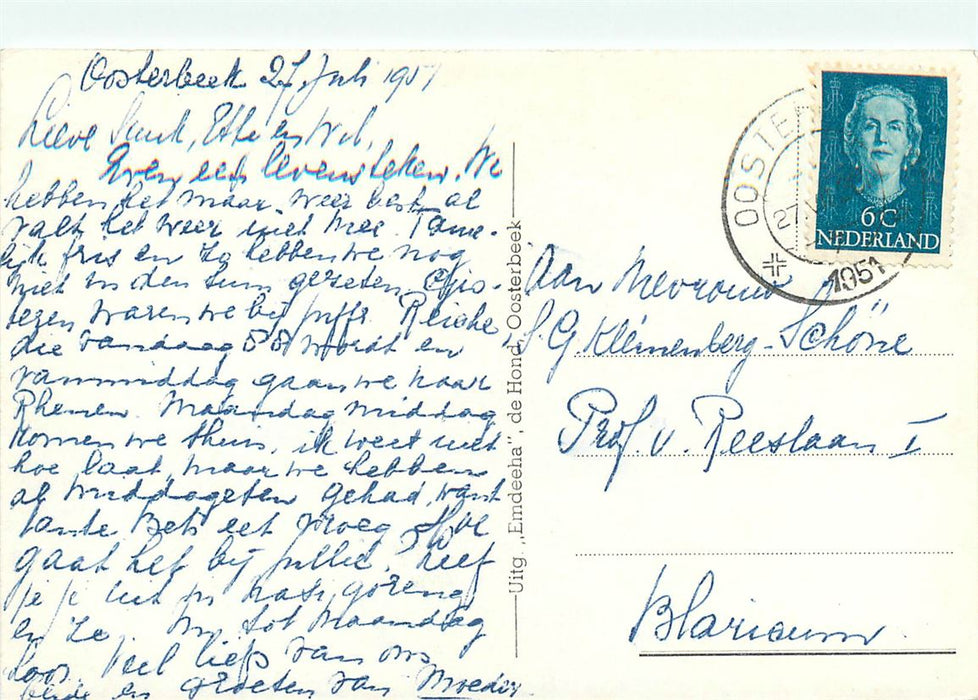 Oosterbeek 27 Juli 1951
Lieve
Even een levensteken. We
hebben het maar weer best al
valt het weer niet mee. Tame-
lijk fris en zo hebben we nog
niet in den tuin gezeten. Gis-
teren waren we bij juffr. Reiche
die vandaag 88 wordt en
vanmiddag gaan we naar
Rhenen. Maandag middag
komen we thuis, ik weet niet
hoe laat, maar we hebben
al middageten gehad, want
tante Bets eet vroeg. Hoe
gaat het bij jullie? heef
je je uit nasi goreng
en ze. Nu tot Maandag
hoor. Veel liefs van ons
beide en groeten van Moeder
Uitg. „Emdeeha", de Hond, Oosterbeek
OOSTERBEEK
27
1951
6 C
NEDERLAND
Aan Mevrouw
S. G. Kleinenberg-Schöne
Prof. v. Reeslaan 1
Blaricum